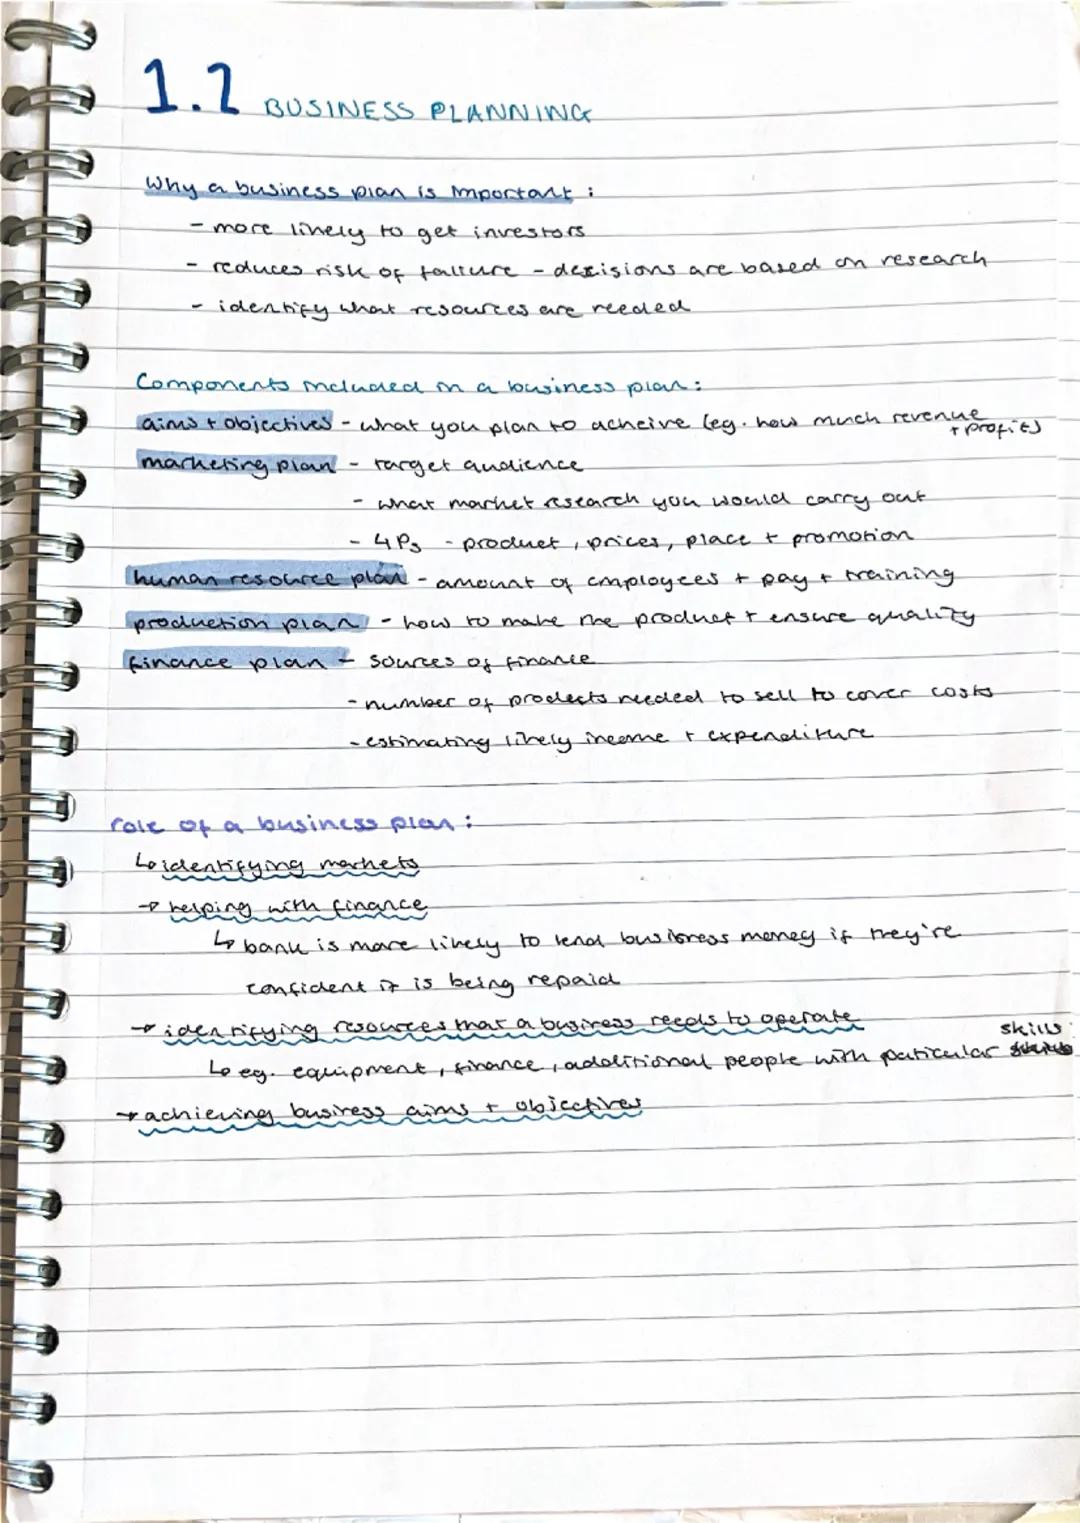 1.2 BUSINESS PLANNING
Why a business plan is important :
- more likely to get investors
- reduces risk of failure - decisions are based on research
- identify what resources are needed
Components included in a business plan :
aims + objectives - what you plan to acheive (eg. how much revenue
+ profit)
marketing plan - target audience
- what market research you would carry out
- 4Ps - product, prices, place + promotion
human resource plan - amount of employees + pay + training
production plan - how to make the product + ensure quality
finance plan - sources of finance
- number of products needed to sell to cover costs
- estimating likely income + expenditure
role of a business plan :
↳ identifying markets
→ helping with finance
↳ bank is more likely to lend business money if they're
confident it is being repaid
→ identifying resources that a business needs to operate
skills
↳ eg. equipment, finance, additional people with paticular
→ achieving business aims + objectives